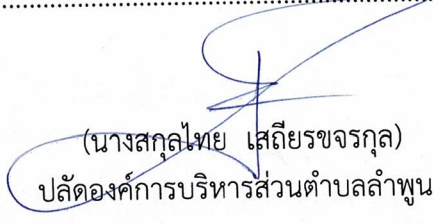 (นางสกุลไทย เสถียรขจรกุล)
ปลัดองค์การบริหารส่วนตำบลลำพูน